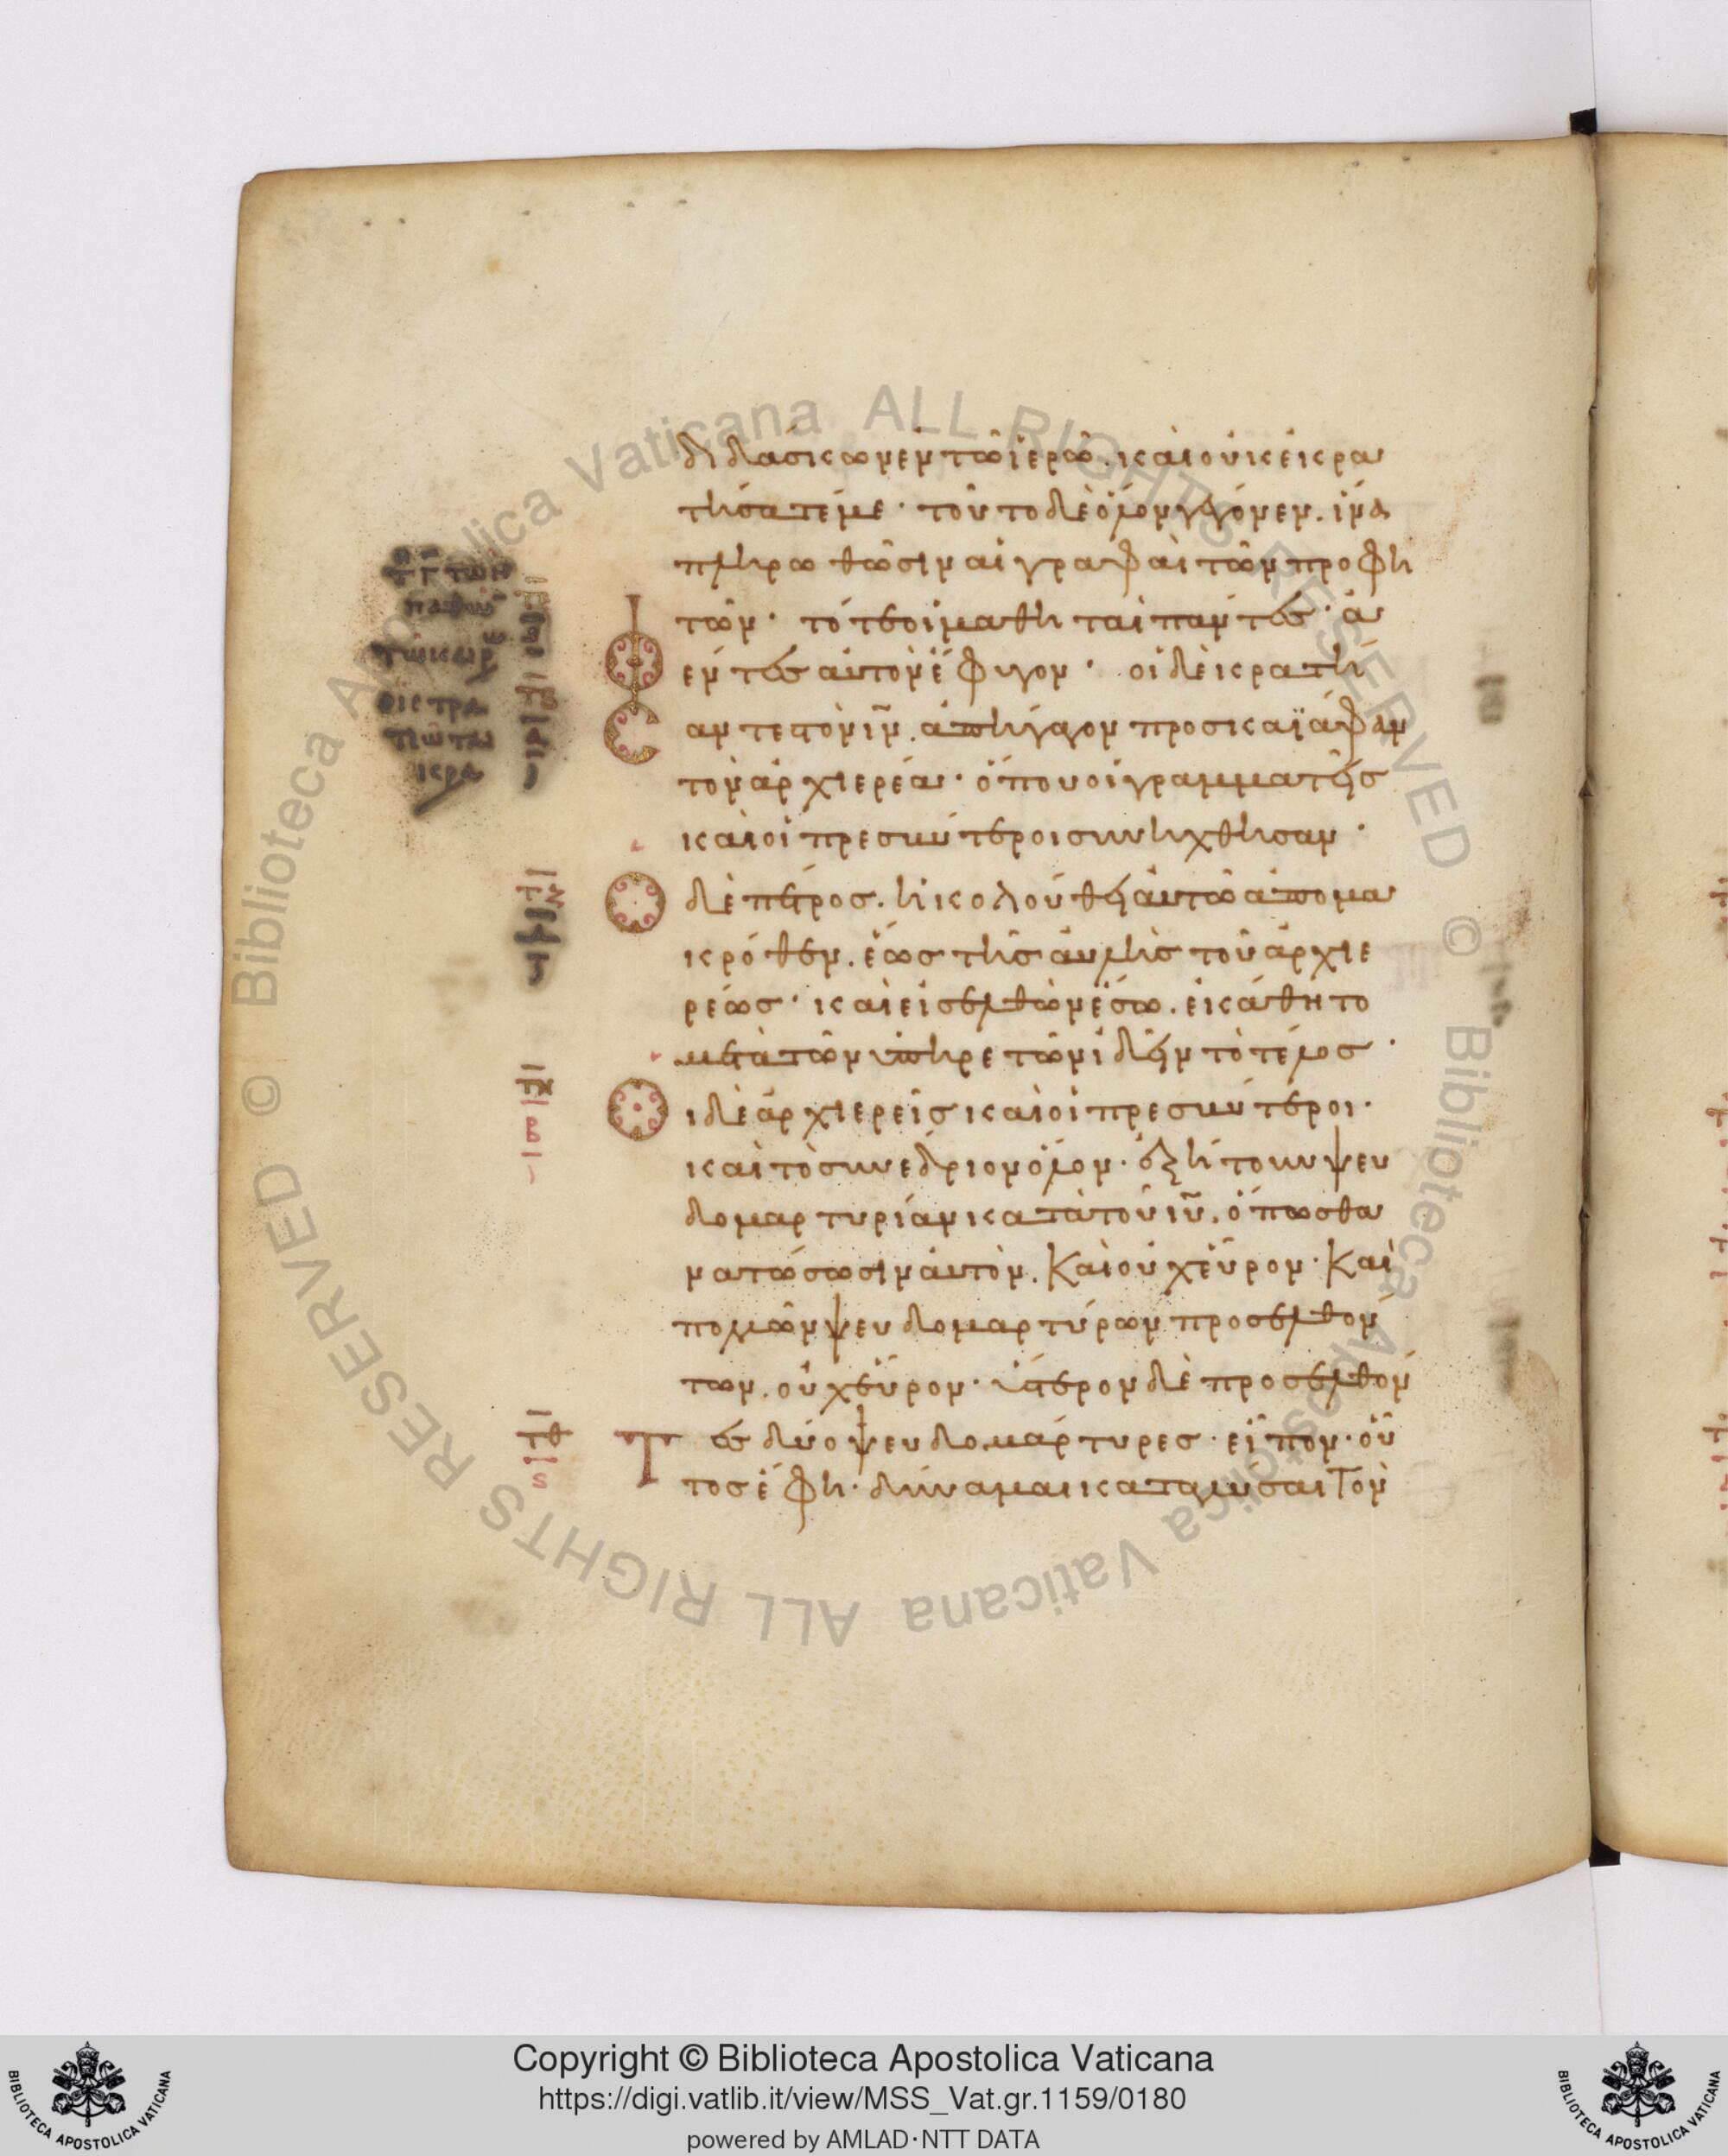 διδάσκων ἐν τῶ ἱερῶ. καὶ οὐκ ἐκρα
τήσατέ με· τοῦτο δὲ ὅλον γέγονεν. ἵνα
πληρωθῶσιν αἱ γραφαὶ τῶν προφη
τῶν· τότε οἱ μαθηταὶ πάντες· ἀ
φέντες αὐτὸν ἔφυγον· οἱ δὲ κρατή
σαντες τὸν ῑν̄. ἀπήγαγον προς καϊάφαν
τὸν ἀρχιερέα· ὅπου οἱ γραμματεῖς
καὶ οἱ πρεσβύτεροι συνήχθησαν·
Ὁ δὲ πέτρος. ἠκολούθει αὐτῶ ἀπο μα
κρόθεν. ἕως τῆς αὐλῆς τοῦ ἀρχιε
ρέως· καὶ εἰσελθὼν ἔσω. ἐκάθητο
μετὰ τῶν ὑπηρετῶν ἰδεῖν τὸ τέλος·
Οἱ δὲ ἀρχιερεῖς καὶ οἱ πρεσβύτεροι·
καὶ τὸ συνέδριον ὅλον· ἐζήτουν ψευ
δομαρτυρίαν κατὰ τοῦ ῑῡ. ὅπως θα
νατώσωσιν αὐτὸν. Καὶ οὐχ εὗρον· Καὶ
πολλῶν ψευδομαρτύρων προσελθόν
των. οὐχ εὗρον· ὕστερον δὲ προσελθόν
Τες δύο ψευδομάρτυρες· εἶπον· οὗ
τος ἔφη· δύναμαι καταλῦσαι Τὸν
Copyright © Biblioteca Apostolica Vaticana
https://digi.vatlib.it/view/MSS_Vat.gr.1159/0180
powered by AMLAD·NTT DATA
BIBLIOTECA APOSTOLICA VATICANA
BIBLIOTECA APOSTOLICA VATICANA
© Biblioteca Apostolica Vaticana ALL RIGHTS RESERVED © Biblioteca Apostolica Vaticana ALL RIGHTS RESERVED